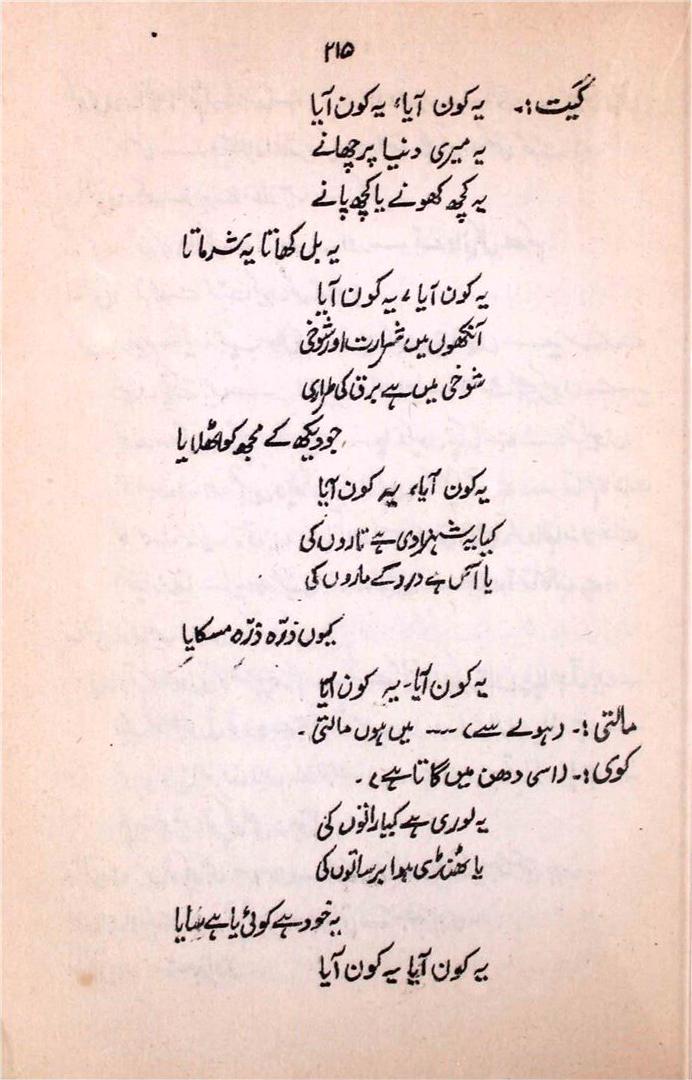 ۲۱۵
گیت :۔ یہ کون آیا، یہ کون آیا
یہ میری دنیا پر چھانے
یہ کچھ کھونے یا کچھ پانے
یہ بل کھاتا یہ شرماتا
یہ کون آیا، یہ کون آیا
آنکھوں میں شرارت اور شوخی
شوخی میں ہے برق کی طراری
جو دیکھ کے مجھ کو اٹھلایا
یہ کون آیا، یہ کون آیا
کیا یہ شہزادی ہے تاروں کی
یا آس ہے درد کے ماروں کی
کیوں ذرّہ ذرّہ مسکایا
یہ کون آیا۔ یہ کون آیا
مالتی :۔ (ہولے سے) ---- میں ہوں مالتی۔
کوی :۔ (اسی دھن میں گاتا ہے)۔
یہ لوری ہے کیا راتوں کی
یا ٹھنڈی ہوا برساتوں کی
یہ خود ہے کوئی یا ہے سایا
یہ کون آیا یہ کون آیا